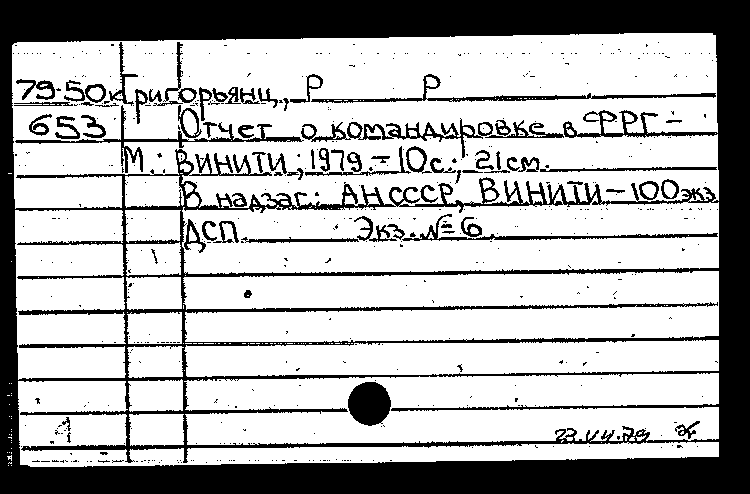 79-50к Григорьянц, Р Р
653 Отчет о командировке в ФРГ –
М.: ВИНИТИ, 1979. – 10с.; 21см.
В надзаг.: АН СССР, ВИНИТИ – 100 экз
ДСП. Экз. № 6.